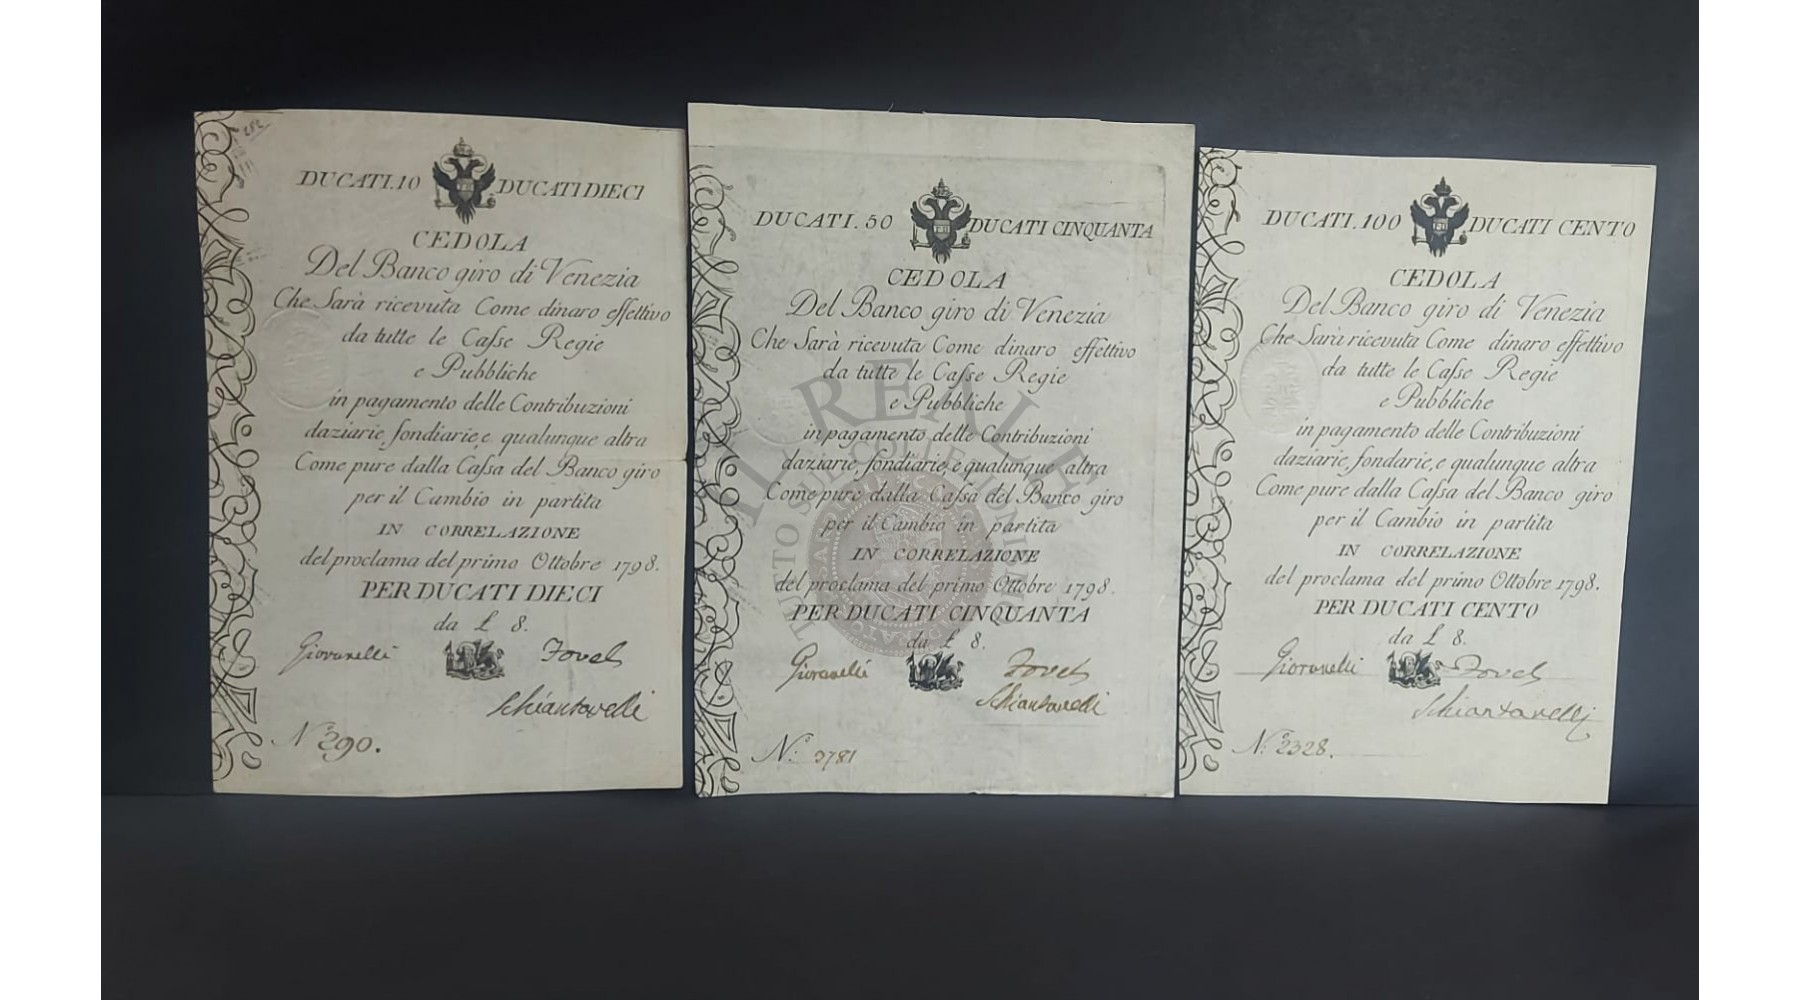 DUCATI.10 DUCATI DIECI
CEDOLA
Del Banco giro di Venezia
Che Sarà ricevuta Come dinaro effettivo
da tutte le Caſse Regie
e Pubbliche
in pagamento delle Contribuzioni
daziarie, fondiarie, e, qualunque altra
Come pure dalla Caſsa del Banco giro
per il Cambio in partita
IN CORRELAZIONE
del proclama del primo Ottobre 1798.
PER DUCATI DIECI
da £ 8.
Giovanelli Zovel
Schiantarelli
N.º 290.
DUCATI.50 DUCATI CINQUANTA
CEDOLA
Del Banco giro di Venezia
Che Sarà ricevuta Come dinaro effettivo
da tutte le Caſse Regie
e Pubbliche
in pagamento delle Contribuzioni
daziarie, fondiarie, e qualunque altra
Come pure dalla Caſsa del Banco giro
per il Cambio in partita
IN CORRELAZIONE
del proclama del primo Ottobre 1798.
PER DUCATI CINQUANTA
da £ 8.
Giovanelli Zovel
Schiantarelli
N.º 3781
DUCATI.100 DUCATI CENTO
CEDOLA
Del Banco giro di Venezia
Che Sarà ricevuta Come dinaro effettivo
da tutte le Caſse Regie
e Pubbliche
in pagamento delle Contribuzioni
daziarie, fondarie, e qualunque altra
Come pure dalla Caſsa del Banco giro
per il Cambio in partita
IN CORRELAZIONE
del proclama del primo Ottobre 1798.
PER DUCATI CENTO
da £ 8.
Giovanelli Zovel
Schiantarelli
N.º 2328.
IL REALE
TUTTO SUL COLLEZIONISMO